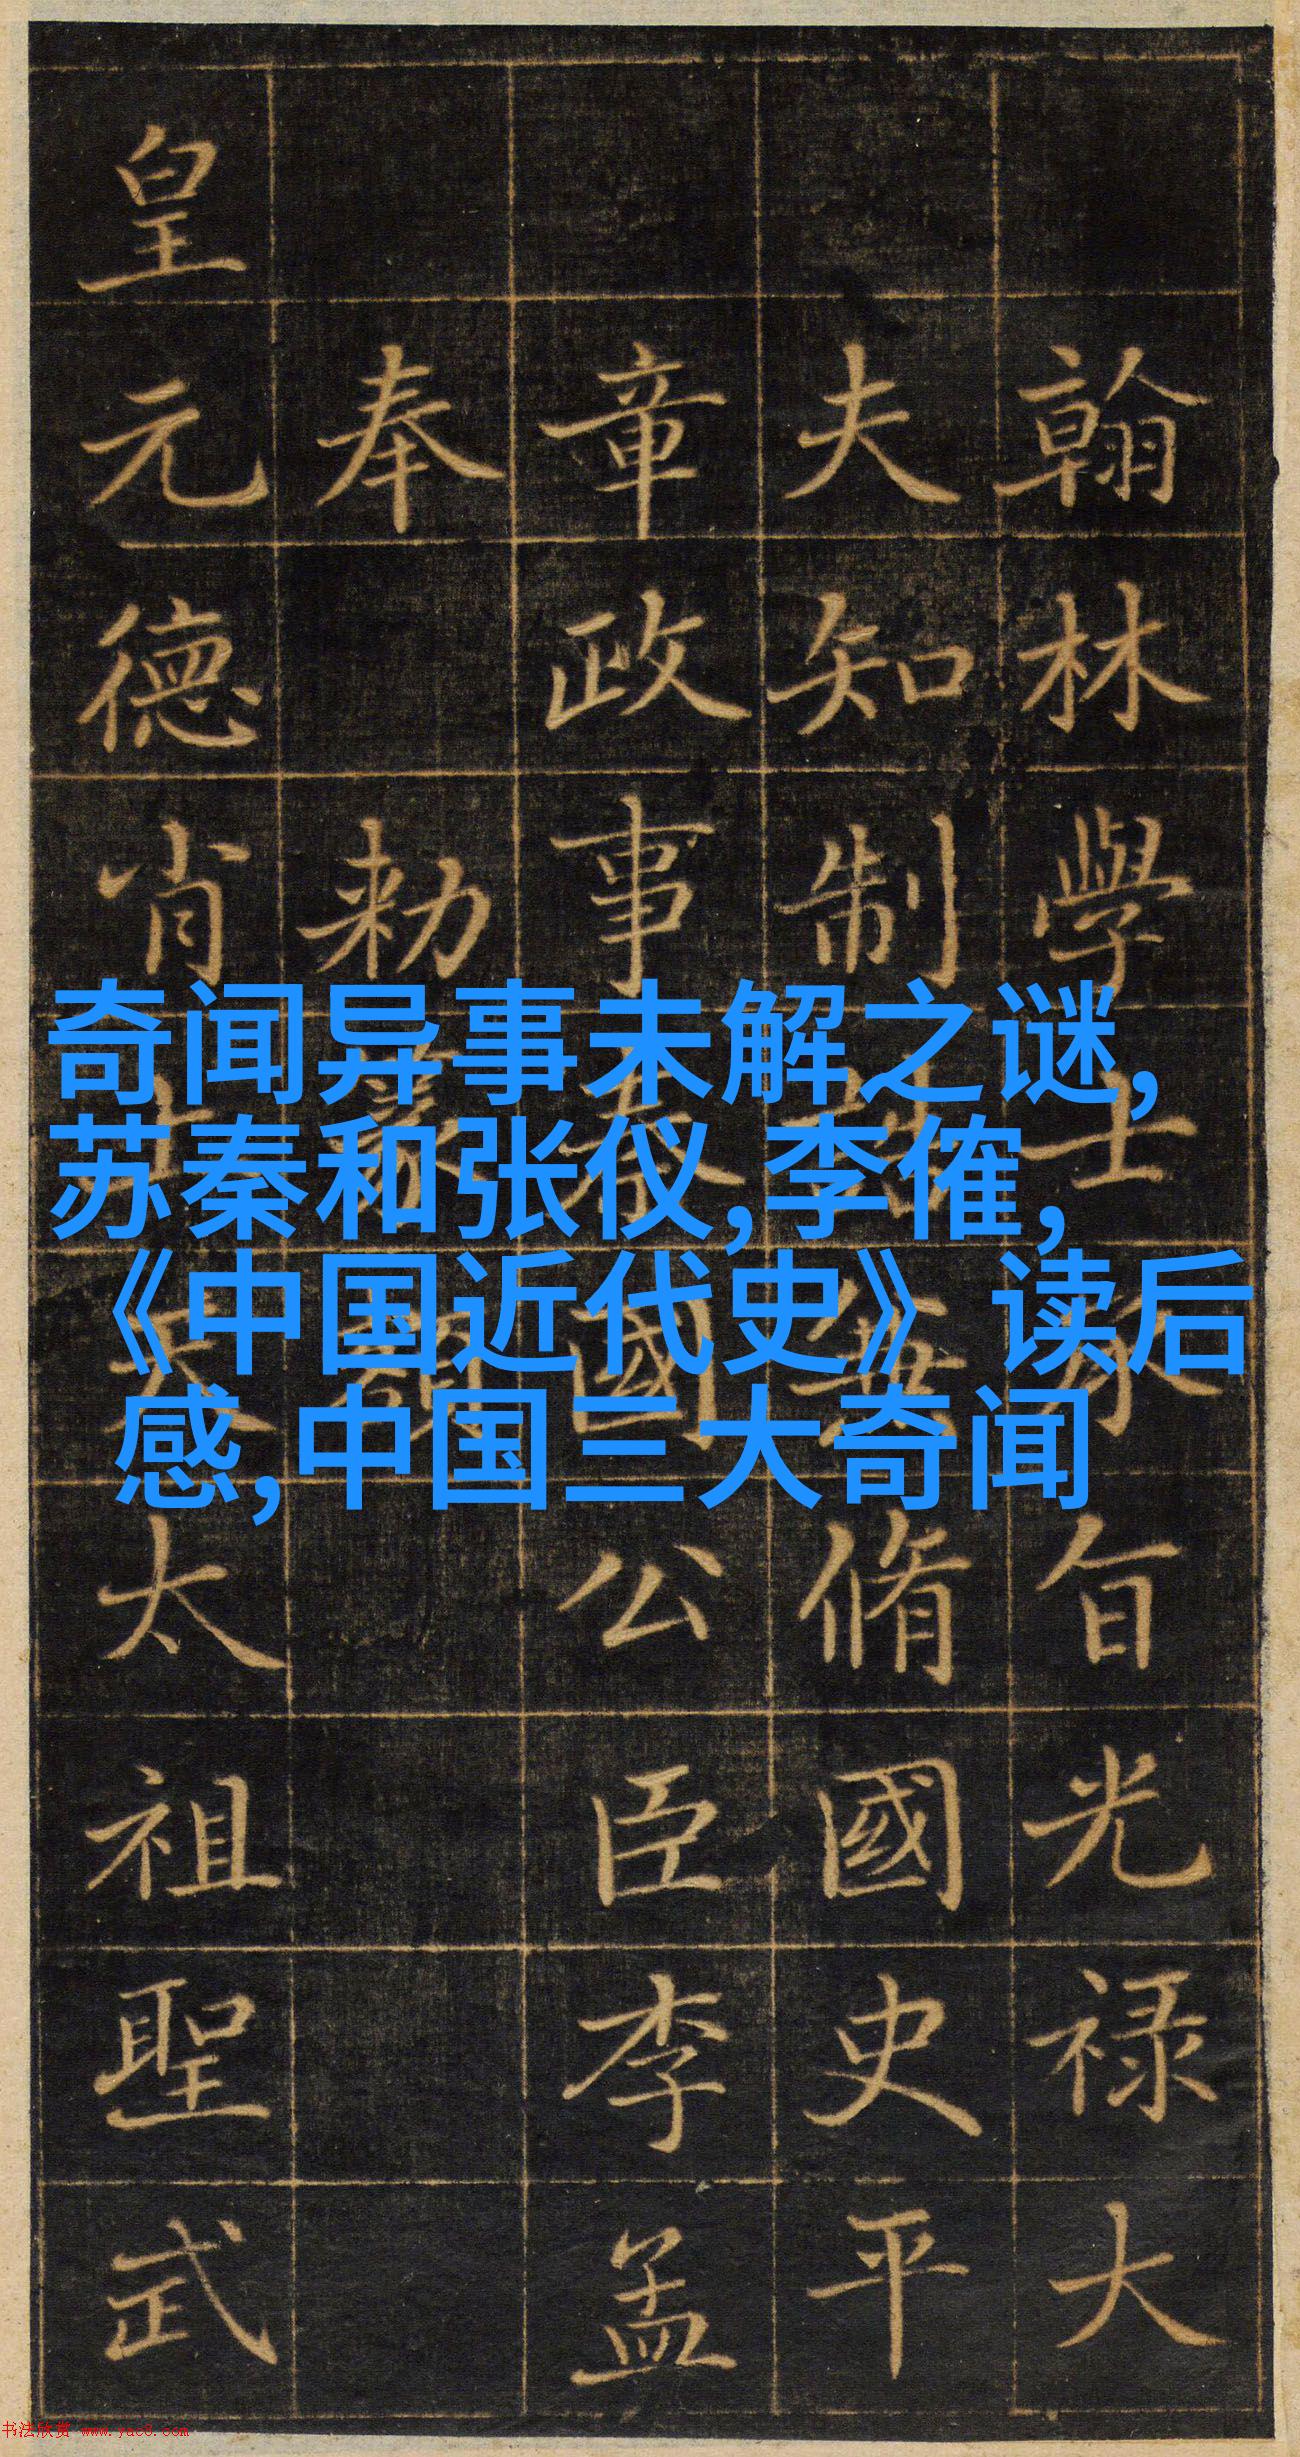 翰林學士旨光禄大
夫知制脩國史平
章政事國公臣李孟
奉勑
皇元德肖太祖聖武
奇闻异事未解之谜,
苏秦和张仪,李傕,
《中国近代史》读后
感,中国三大奇闻
书法欣赏 www.yac8.com